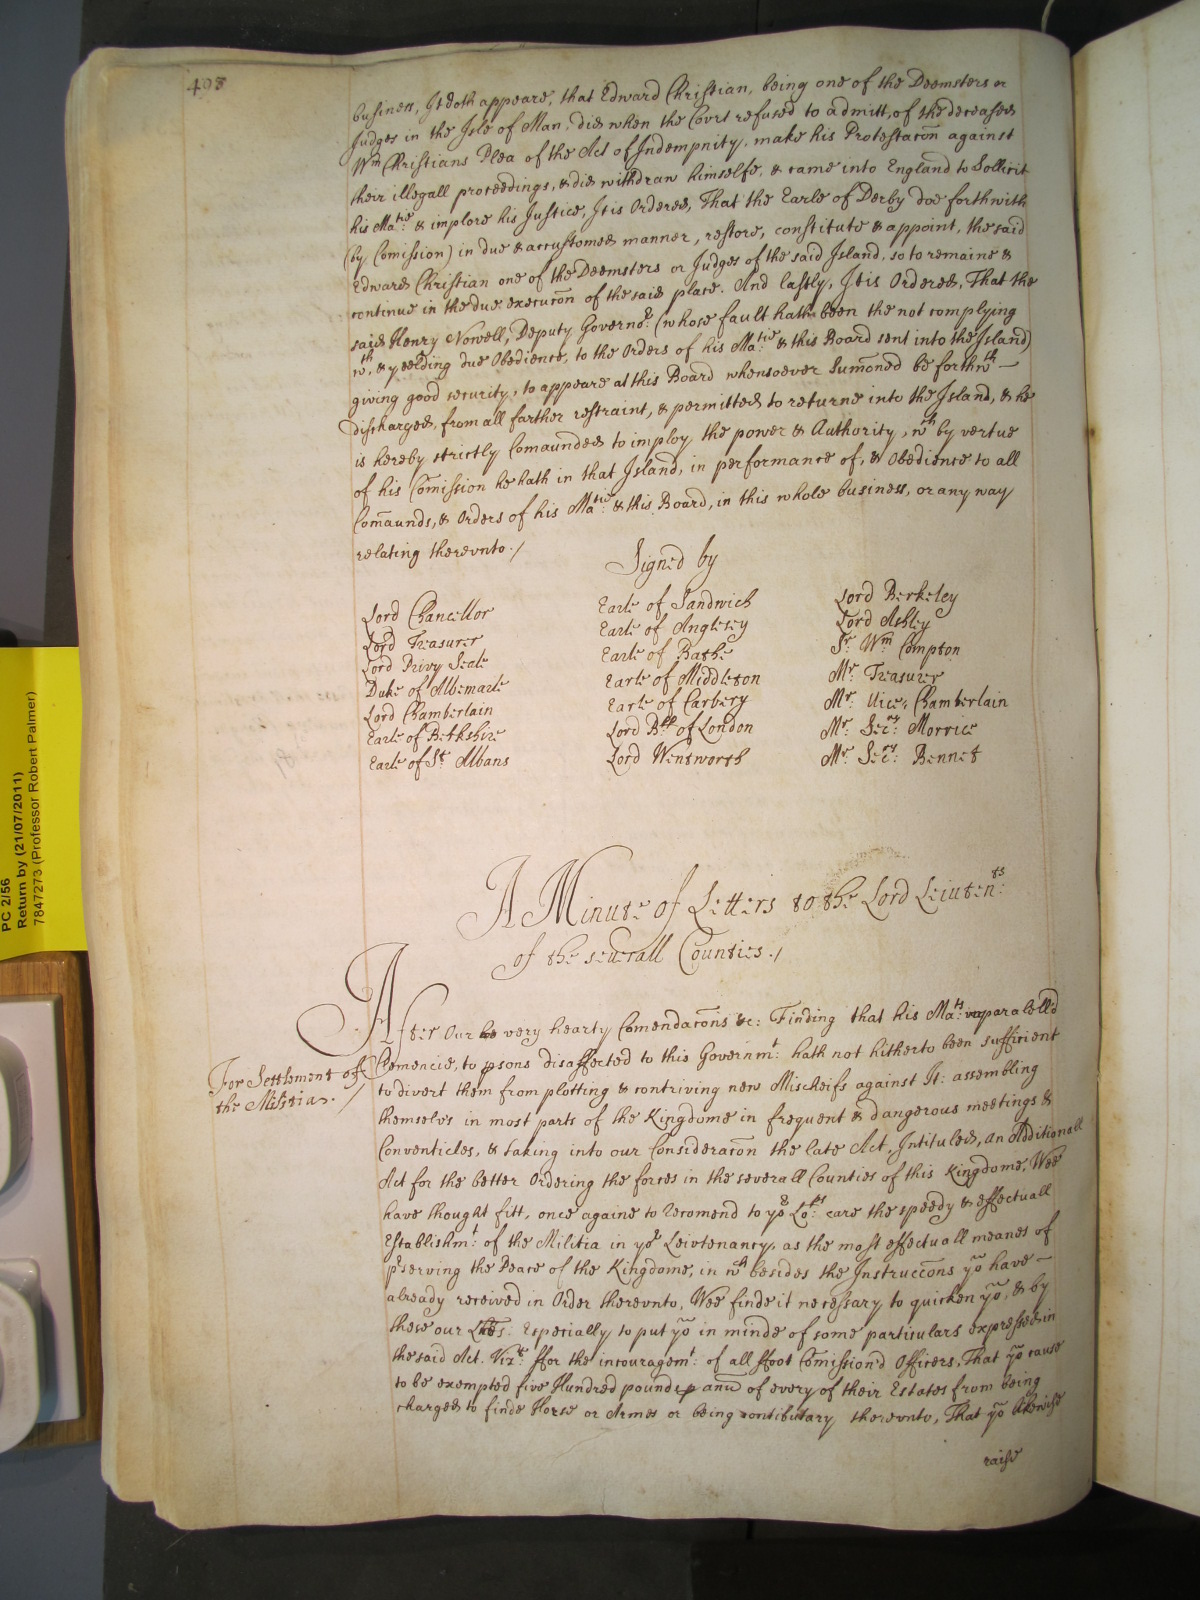 408
business, It doth appeare, that Edward Christian, being one of the Deemsters or
Judges in the Isle of Man, did when the Court refused to admitt, of the deceased
Wm Christians Plea of the Act of Indempnity, make his Protestacōn against
their illegall proceedings, & did withdraw himselfe, & came into England to Sollicit
his Matie: & implore his Justice, It is Ordered, That the Earle of Derby doe forthwith
(by Comission) in due & accustomed manner, restore, constitute & appoint, the said
Edward Christian one of the Deemsters or Judges of the said Island, so to remaine &
continue in the due execucōn of the said place. And lastly, It is Ordered, That the
said Henry Nowell, Deputy Governor: (whose fault hath been the not complying
wth, & yeelding due Obedience, to the Orders of his Matie: & this Board sent into the Island)
giving good security, to appeare at this Board whensoever Sumōned be forthwth —
discharged, from all farther restraint, & permitted to returne into the Island, & he
is hereby strictly Comaunded to imploy the power & Authority, wch by vertue
of his Comission he hath in that Island, in performance of, & Obedience to all
Comaunds, & Orders of his Matie: & this Board, in this whole business, or any way
relating therevnto./
Signed by
Lord Chancellor
Lord Treasurer
Lord Privy Seale
Duke of Albemarle
Lord Chamberlain
Earle of Berkshire
Earle of St Albans
Earle of Sandwich
Earle of Anglesey
Earle of Bathe
Earle of Middleton
Earle of Carbery
Lord Bpp of London
Lord Wentworth
Lord Berkeley
Lord Ashley
Sr Wm Compton
Mr Treasurer
Mr Vice: Chamberlain
Mr Secry: Morrice
Mr Secry: Bennet
A Minute of Letters to the Lord Leiutents:
of the seuerall Counties./
For Settlement of
the Militia./
After Our very hearty Comendacōns &c: Finding that his Mats: vnparalelld
Clemencie, to psons disaffected to this Governmt: hath not hitherto been sufficient
to divert them from plotting & contriving new Mischeifs against It: assembling
themselvs in most parts of the Kingdome in frequent & dangerous meetings &
Conventicles, & taking into our Consideracōn the late Act, Intituled, an Additionall
Act for the better Ordering the forces in the severall Counties of this Kingdome, Wee
have thought fitt, once againe to Recomend to yor Lops: care the speedy & effectuall
Establishmt: of the Militia in yor Leivtenancy, as the most effectuall meanes of
pserving the Peace of the Kingdome, in wch besides the Instruccōns yo have —
already received in Order therevnto, Wee finde it necessary to quicken yo, & by
these our Lres: Especially to put yo in minde of some particulars expressed in
the said Act. Vizt: ffor the incouragemt: of all ffoot Comission'd Officers, That yo cause
to be exempted five Hundred pounds p annū of every of their Estates from being
charged to finde Horse or Armes or being contibutary therevnto, That yo likewise
raise
PC 2/56
Return by (21/07/2011)
7847273 (Professor Robert Palmer)